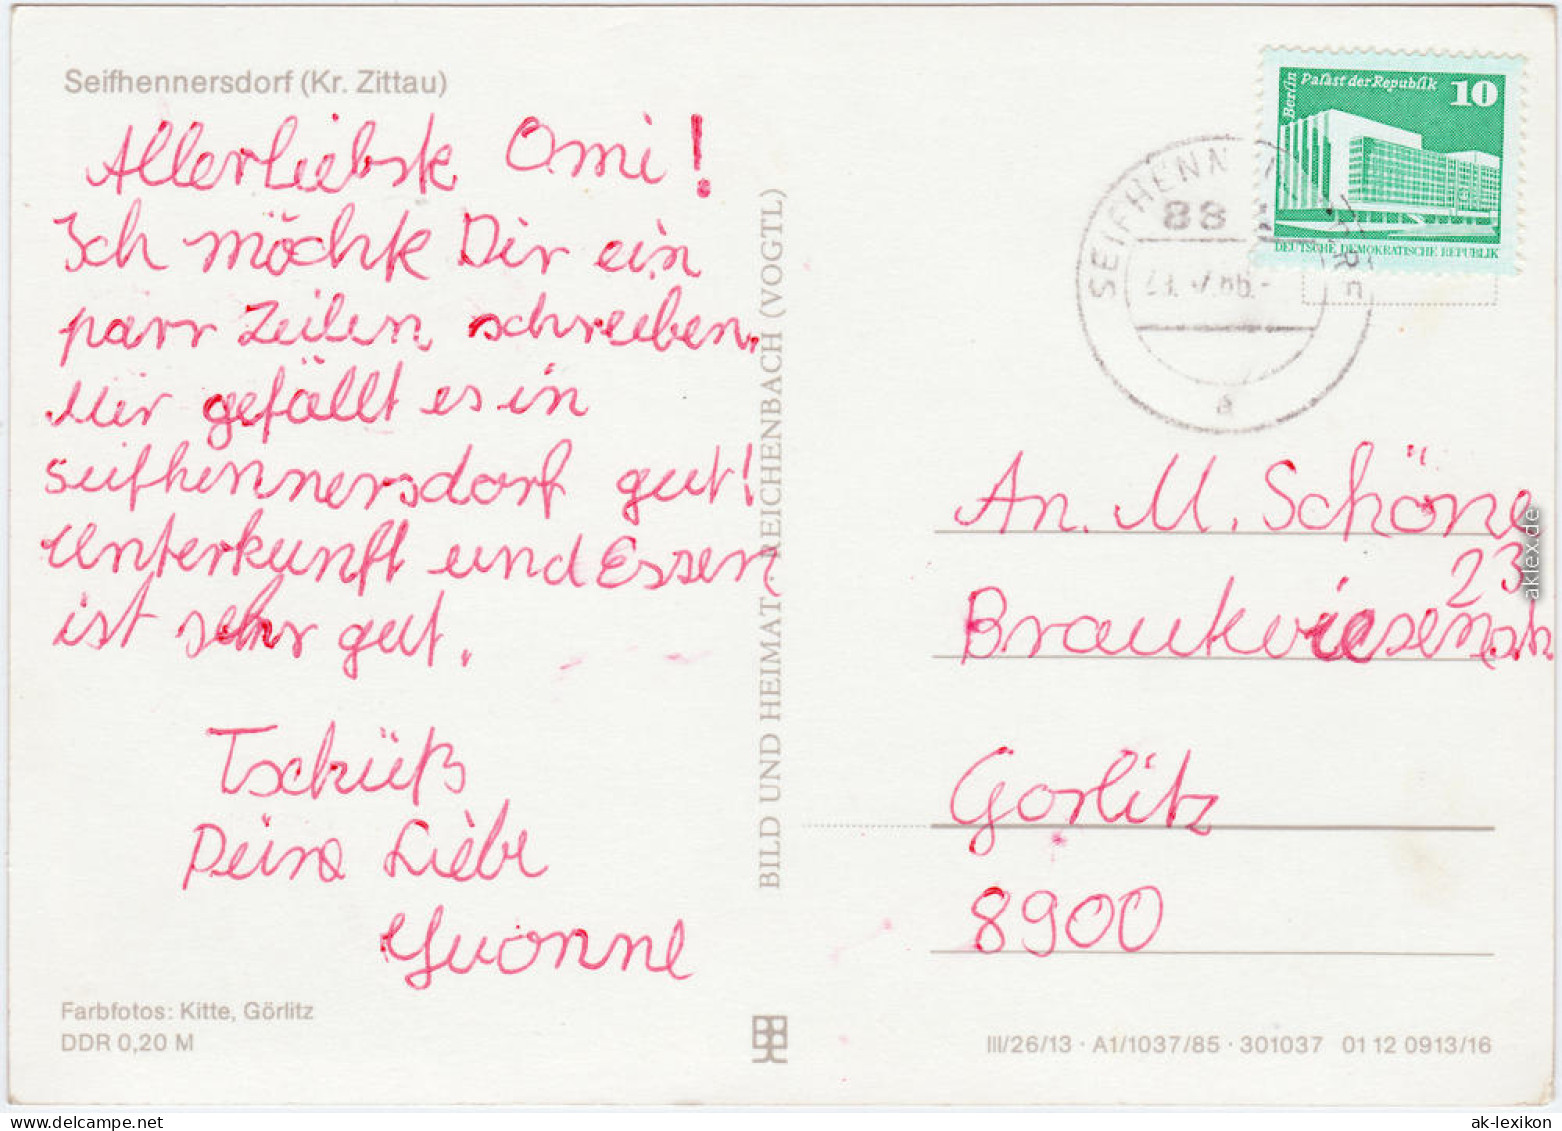 Seifhennersdorf (Kr. Zittau)
Allerliebste Omi!
Ich möchte Dir ein
parr Zeilen schreiben.
Mir gefällt es in
seifhennersdorf gut!
Unterkunft und Essen
ist sehr gut.
Tschüß
Deine Liebe
Yvonne
Farbfotos: Kitte, Görlitz
DDR 0,20 M
BILD UND HEIMAT · REICHENBACH (VOGTL)
Berlin
Palast der Republik
10
DEUTSCHE DEMOKRATISCHE REPUBLIK
SEIFHENN
88
a
An. M. Schöne
23
Braukwiesenstr.
Görlitz
8900
III/26/13 · A1/1037/85 · 301037 01 12 0913/16
aklex.de
ak-lexikon